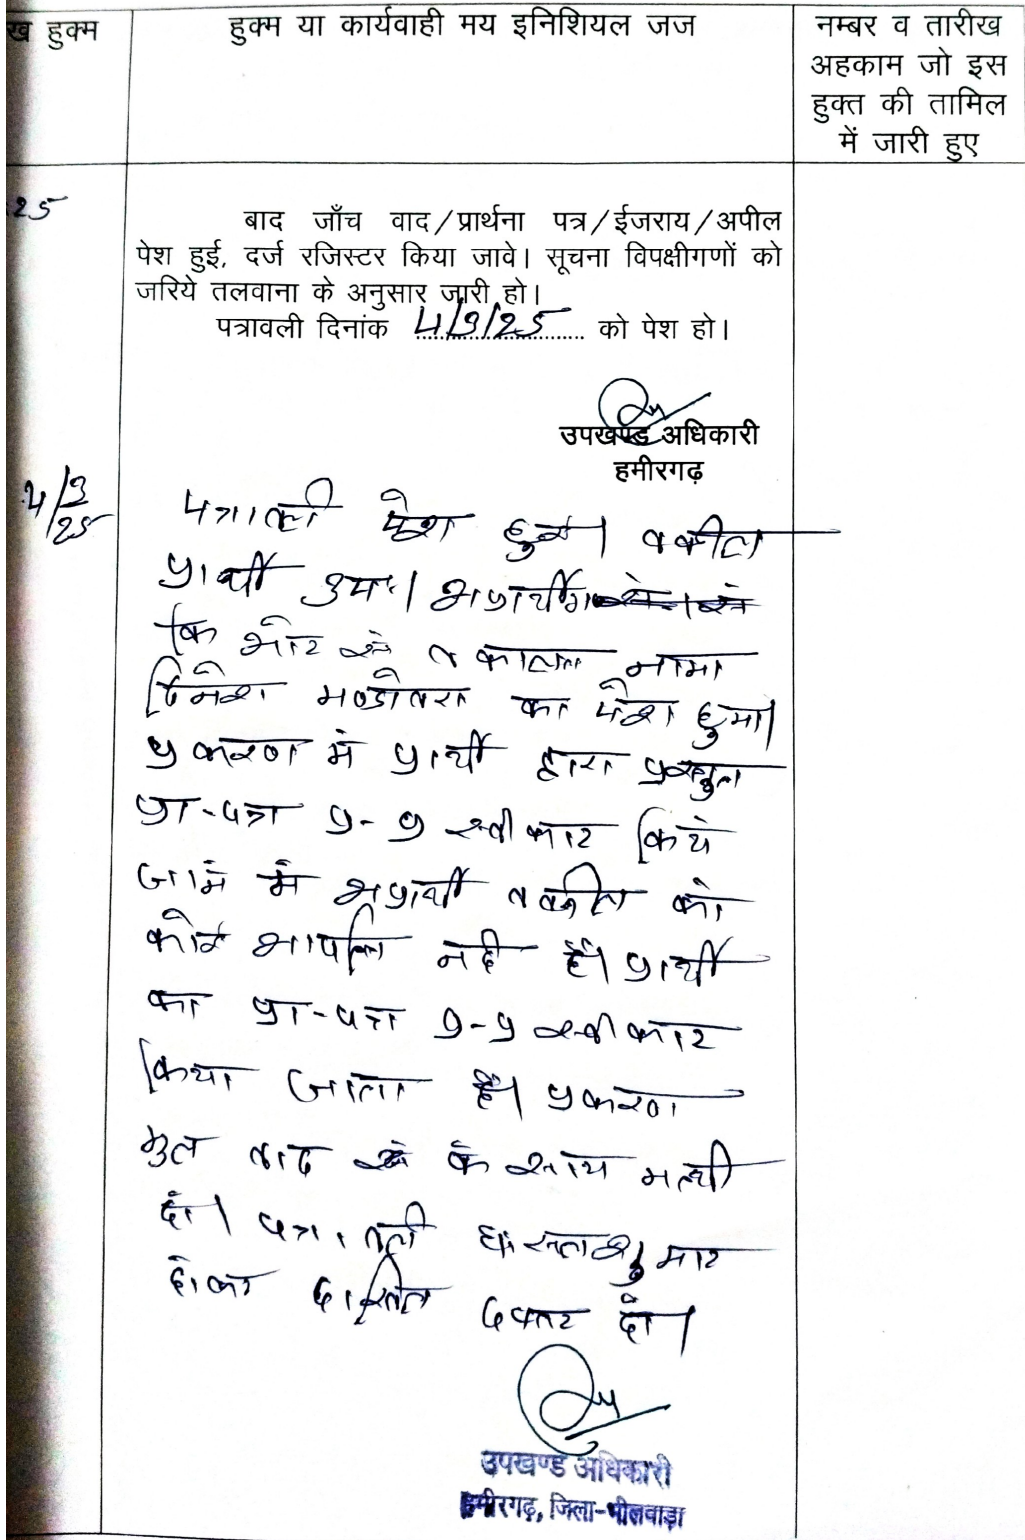 ख हुक्म
हुक्म या कार्यवाही मय इनिशियल जज
नम्बर व तारीख
अहकाम जो इस
हुक्त की तामिल
में जारी हुए
25
बाद जाँच वाद/प्रार्थना पत्र/ईजराय/अपील
पेश हुई, दर्ज रजिस्टर किया जावे। सूचना विपक्षीगणों को
जरिये तलवाना के अनुसार जारी हो।
पत्रावली दिनांक 4/9/25 को पेश हो।
उपखण्ड अधिकारी
हमीरगढ़
4/9/25
पत्रावली पेश हुई। वकील
प्रार्थी उप.। अप्रार्थीग
कि ओर से वकालत नामा
दिनेश मण्डोवरा का पेश हुआ।
प्रकरण में प्रार्थी द्वारा प्रस्तुत
प्रा-पत्र 9-9 स्वीकार किये
जाने में अप्रार्थी वकील को
कोई आपत्ति नही है। प्रार्थी
का प्रा-पत्र 9-9 स्वीकार
किया जाता है। प्रकरण
मुल वाद के साथ नत्थी
हो। पत्रावली शुमार
होकर दाखिल दफ्तर हो।
उपखण्ड अधिकारी
हमीरगढ़, जिला-भीलवाड़ा